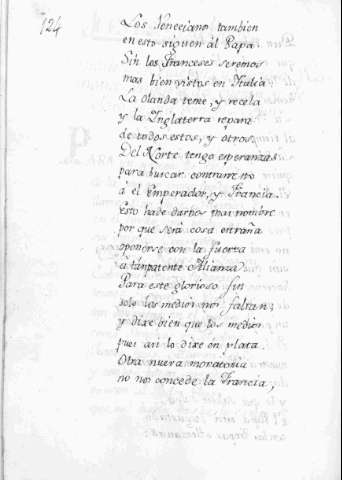 124
Los Veneciano tambien
en esto siguen àl Papa.
Sin los Franceses seremos
mas bien vistos en Italia
La olanda teme, y recela
y la Inglaterra repara
de todos estos, y otros
Del Norte tengo esperanzas
para buscar contrarresto
a el Emperador, y Francia.
Esto hade darnos mas nombre
por que será cosa extraña
oponerse con la fuerza
a tan patente Alianza
Para este glorioso fin
solo los medios nos faltan;
y dixe bien que los medios
pues asi lo dixe en plata
Otra nueva monarquia
no nos concede la Francia,